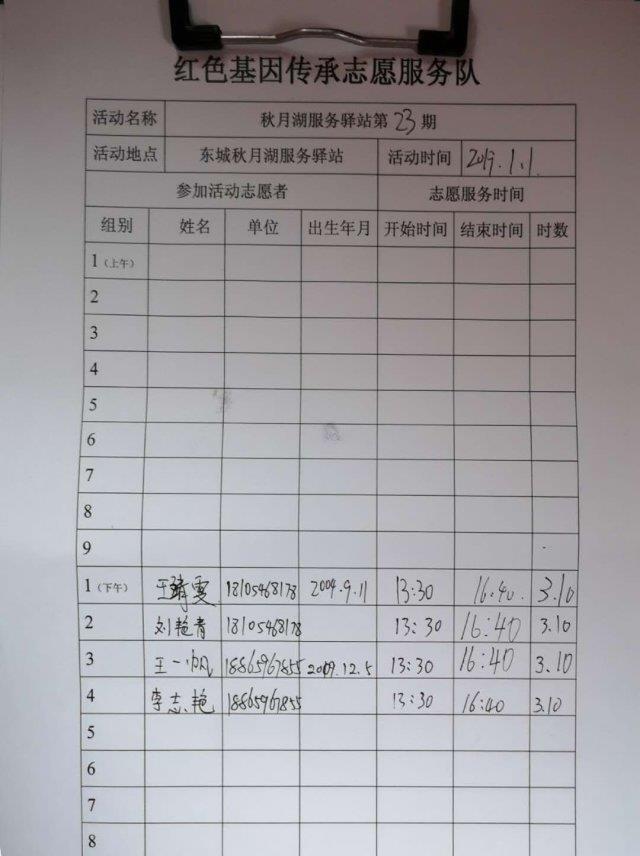 红色基因传承志愿服务队
活动名称 秋月湖服务驿站第23期
活动地点 东城秋月湖服务驿站 活动时间 2019.1.1.
参加活动志愿者 志愿服务时间
组别 姓名 单位 出生年月 开始时间 结束时间 时数
1(上午)
2
3
4
5
6
7
8
9
1(下午) 王靖雯 18105468178 2009.9.11 13:30 16:40 3.10
2 刘艳青 18105468178 13:30 16:40 3.10
3 王一帆 18865967855 2009.12.5 13:30 16:40 3.10
4 李志艳 18865967855 13:30 16:40 3.10
5
6
7
8